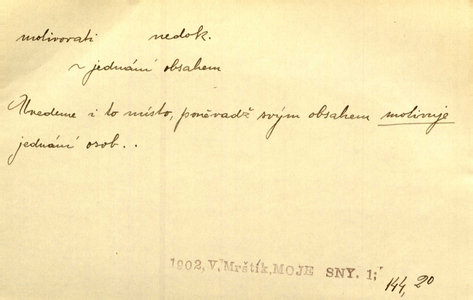 motivovati nedok.
~ jednání obsahem
Uvedeme i to místo, poněvadž svým obsahem motivuje
jednání osob..
1902, V. Mrštík, MOJE SNY. 1;
144, 20